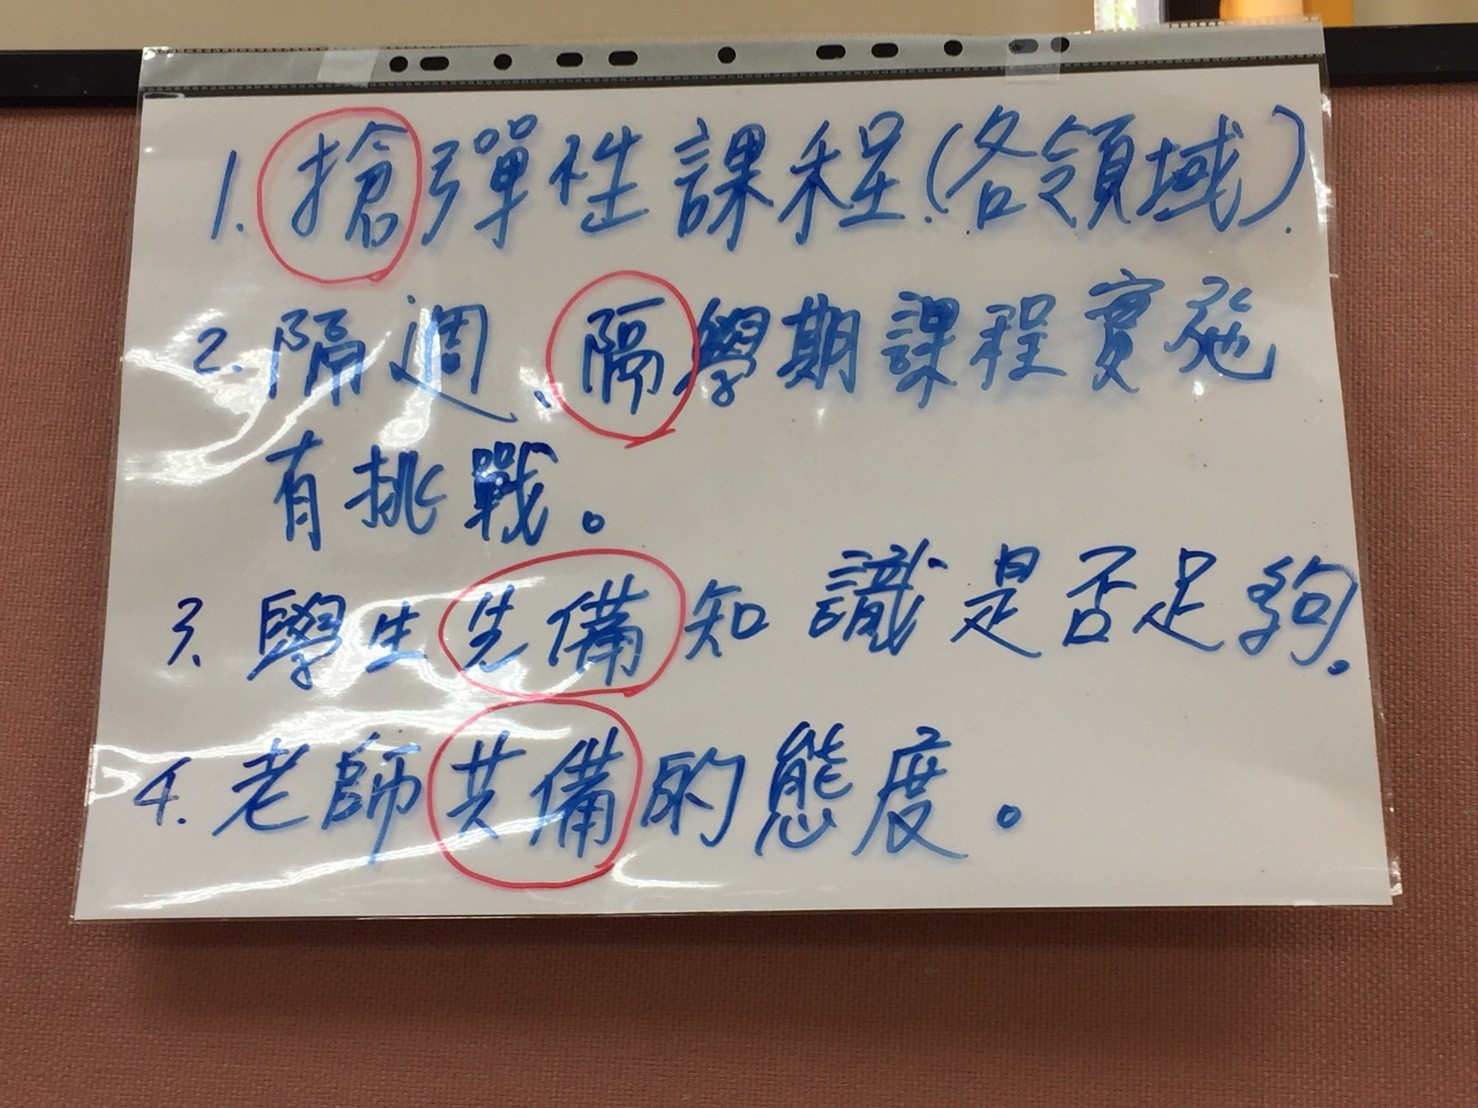 1. 搶彈性課程(各領域).
2. 隔週、隔學期課程實施
有挑戰。
3. 學生先備知識是否足夠.
4. 老師共備的態度。